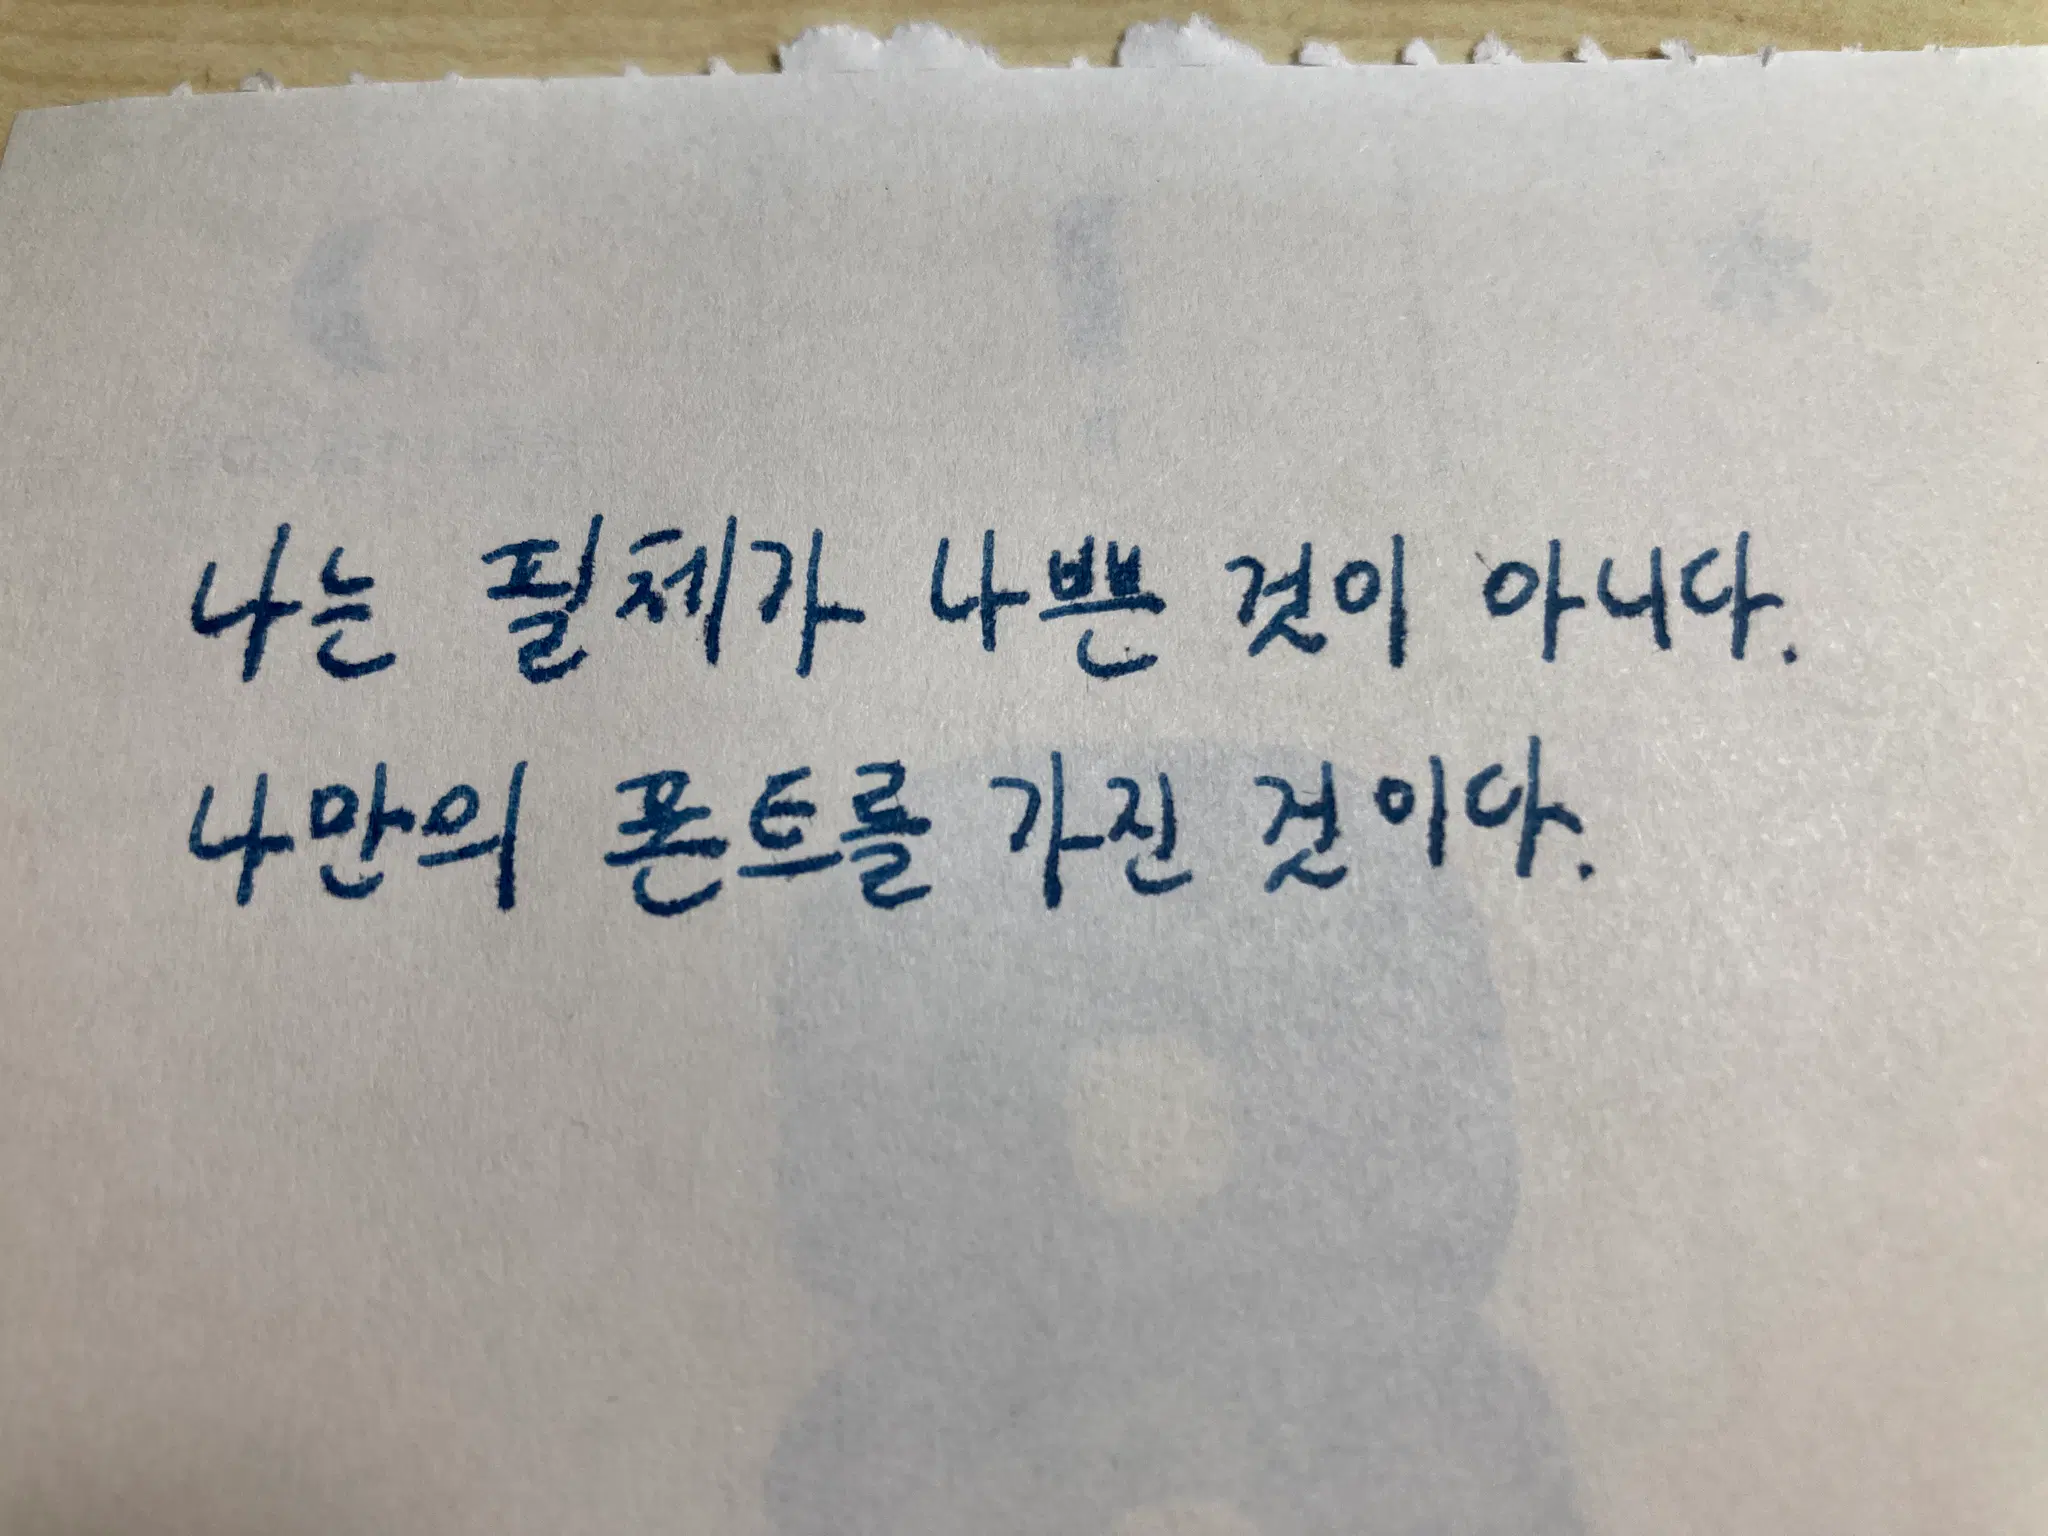 나는 필체가 나쁜 것이 아니다.
나만의 폰트를 가진 것이다.